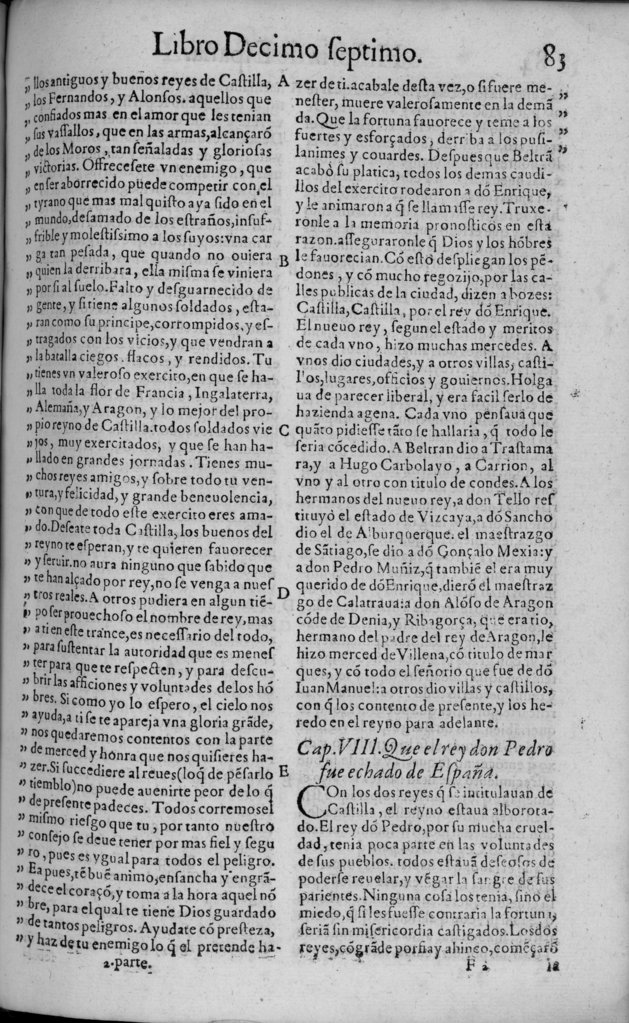 Libro Decimo septimo. 83
„ llos antiguos y buenos reyes de Castilla,
„ los Fernandos, y Alonsos. aquellos que
„ confiados mas en el amor que les tenian
„ sus vassallos, que en las armas, alcançarõ
„ de los Moros, tan señaladas y gloriosas
„ victorias. Offrecesete vn enemigo, que
„ en ser aborrecido puede competir con el
„ tyrano que mas mal quisto aya sido en el
„ mundo, desamado de los estraños, insuf-
„ frible y molestissimo a los suyos: vna car
„ ga tan pesada, que quando no ouiera
„ quien la derribara, ella misma se viniera
„ por si al suelo. Falto y desguarnecido de
„ gente, y si tiene algunos soldados, esta-
„ ran como su principe, corrompidos, y es-
„ tragados con los vicios, y que vendran a
„ la batalla ciegos, flacos, y rendidos. Tu
„ tienes vn valeroso exercito, en que se ha-
„ lla toda la flor de Francia, Ingalaterra,
„ Alemaña, y Aragon, y lo mejor del pro-
„ pio reyno de Castilla. todos soldados vie
„ jos, muy exercitados, y que se han ha-
„ llado en grandes jornadas. Tienes mu-
„ chos reyes amigos, y sobre todo tu ven-
„ tura, y felicidad, y grande beneuolencia,
„ con que de todo este exercito eres ama-
„ do. Deseate toda Castilla, los buenos del
„ reyno te esperan, y te quieren fauorecer
„ y seruir. no aura ninguno que sabido que
„ te han alçado por rey, no se venga a nues
„ tros reales. A otros pudiera en algun tiē-
„ po ser prouechoso el nombre de rey, mas
„ a ti en este trance, es necessario del todo,
„ para sustentar la autoridad que es menes
„ ter para que te respecten, y para descu-
„ brir las afficiones y voluntades de los hõ
„ bres. Si como yo lo espero, el cielo nos
„ ayuda, a ti se te apareja vna gloria grãde,
„ nos quedaremos contentos con la parte
„ de merced y honra que nos quisieres ha-
„ zer. Si succediere al reues (lo q̃ de pẽsarlo
„ tiemblo) no puede auenirte peor de lo q̃
„ de presente padeces. Todos corremos el
„ mismo riesgo que tu, por tanto nuestro
„ consejo se deue tener por mas fiel y segu
„ ro, pues es ygual para todos el peligro.
„ Ea pues, tẽ buẽ animo, ensancha y engrã-
„ dece el coraçõ, y toma a la hora aquel nõ
„ bre, para el qual te tiene Dios guardado
„ de tantos peligros. Ayudate cõ presteza,
„ y haz de tu enemigo lo q̃ el pretende ha-
2. parte.
A zer de ti. acabale desta vez, o si fuere me- „
nester, muere valerosamente en la demã „
da. Que la fortuna fauorece y teme a los „
fuertes y esforçados, derriba a los pusi- „
lanimes y couardes. Despues que Beltrã „
acabò su platica, todos los demas caudi-
llos del exercito rodearon a dõ Enrique,
y le animaron a q̃ se llamasse rey. Truxe-
ronle a la memoria pronosticos en esta
razon. asseguraronle q̃ Dios y los hõbres
B le fauorecian. Cõ esto despliegan los pẽ-
dones, y cõ mucho regozijo, por las ca-
lles publicas de la ciudad, dizen a bozes:
Castilla, Castilla, por el rey dõ Enrique.
El nueuo rey, segun el estado y meritos
de cada vno, hizo muchas mercedes. A
vnos dio ciudades, y a otros villas, casti-
llos, lugares, officios y gouiernos. Holga
ua de parecer liberal, y era facil serlo de
hazienda agena. Cada vno pensaua que
C quãto pidiesse tãto se hallaria, q̃ todo le
seria cõcedido. A Beltran dio a Trastama
ra, y a Hugo Carbolayo, a Carrion, al
vno y al otro con titulo de condes. A los
hermanos del nueuo rey, a don Tello res
tituyò el estado de Vizcaya, a dõ Sancho
dio el de Alburquerque. el maestrazgo
de Sãtiago, se dio a dõ Gonçalo Mexia: y
a don Pedro Muñiz, q̃ tambiẽ el era muy
querido de dõ Enrique, dierõ el maestraz
D go de Calatraua: a don Alõso de Aragon
cõde de Denia, y Ribagorça, que era tio,
hermano del padre del rey de Aragon, le
hizo merced de Villena, cõ titulo de mar
ques, y cõ todo el señorio que fue de dõ
Iuan Manuel: a otros dio villas y castillos,
con q̃ los contento de presente, y los he-
redo en el reyno para adelante.
Cap. VIII. Que el rey don Pedro
E fue echado de España.
COn los dos reyes q̃ se intitulauan de
Castilla, el reyno estaua alborota-
do. El rey dõ Pedro, por su mucha cruel-
dad, tenia poca parte en las voluntades
de sus pueblos. todos estauã deseosos de
poderse reuelar, y vẽgar la sangre de sus
parientes. Ninguna cosa los tenia, sino el
miedo, q̃ si les fuesse contraria la fortuna,
seriã sin misericordia castigados. Los dos
reyes, cõ grãde porfia y ahinco, comẽçarõ
F 2 la